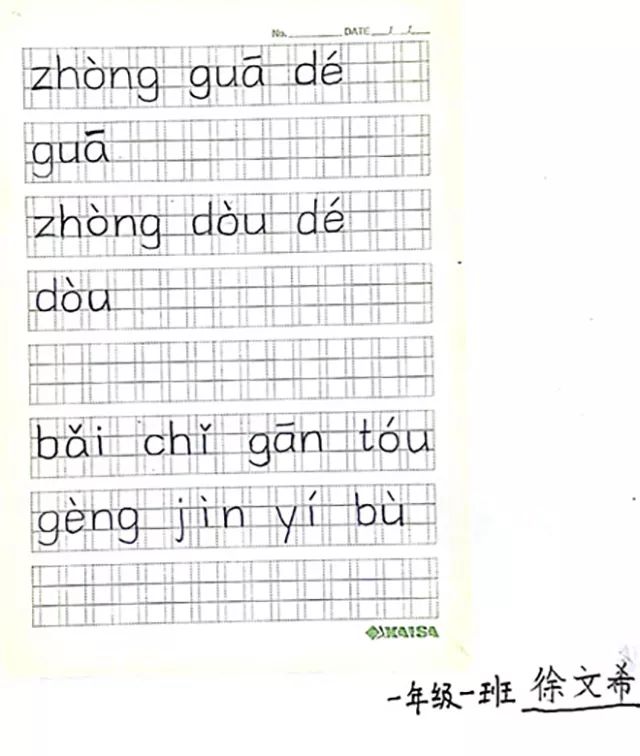 No. DATE / /
zhòng guā dé
guā
zhòng dòu dé
dòu
bǎi chǐ gān tóu
gèng jìn yí bù
KAISA
一年级一班 徐文希